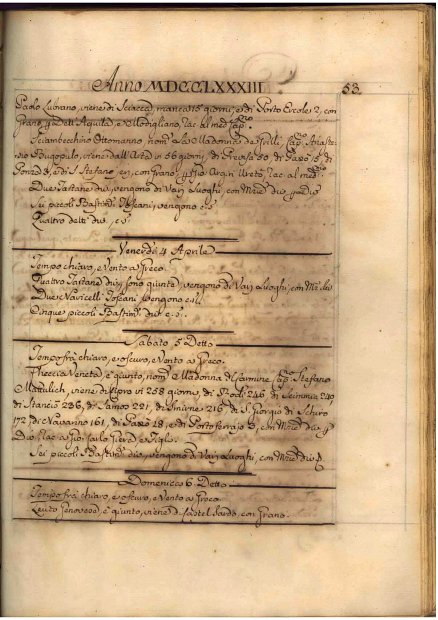 Anno MDCCLXXXIII
53
Paolo Lubrano, viene di Sciacca, manca 15 giorni, e di Porto Ercole 2, con
Grano, Dell'Aquila, e Modigliano, rac. al med.
Sciambecchino Ottomanno, nom. La Madonna de
viene dall'Arta in 56 giorni, di Prevesa 50, di Paxò 15, di
Ponza 8, e di S. Stefano con grano, rac. al med.
Due Tartane div. vengono di Varj Luoghi, con Merc. div. p. Div.
Sei piccoli Bastim. Toscani, vengono c. s.
Quattro detti div. c. s.
Venerdì 4 Aprile
Tempo chiaro, e Vento a Greco.
Quattro Tartane div. sono giunte, vengono di Varj Luoghi, con Mer. div.
Due Navicelli Toscani vengono c. s.
Cinque piccoli Bastim. div. c. s.
Sabato 5 Detto
Tempo frà chiaro, e oscuro, e Vento a Greco.
Checcia Veneta, è giunta, nom. Madonna del Carmine Cap. Stefano
Matulich, viene di Cipro in 258 giorni, di Rodi 246, di 240
di Stanciò 236, di Samos 221, di Smirne 216, di S. Giorgio di Schiro
172, di Navarino 161, di Paxò 18, e di Portoferrajo 3, con Merc. div. p.
Div. rac. a Gio. Carlo e Figlio.
Sei piccoli Bastim. div. vengono di Varj Luoghi, con Merc. div.
Domenica 6 Detto
Tempo frà chiaro, e oscuro, e Vento a Greco.
Leuto Genovese, è giunto, viene di Castel Sardo, con Grano.